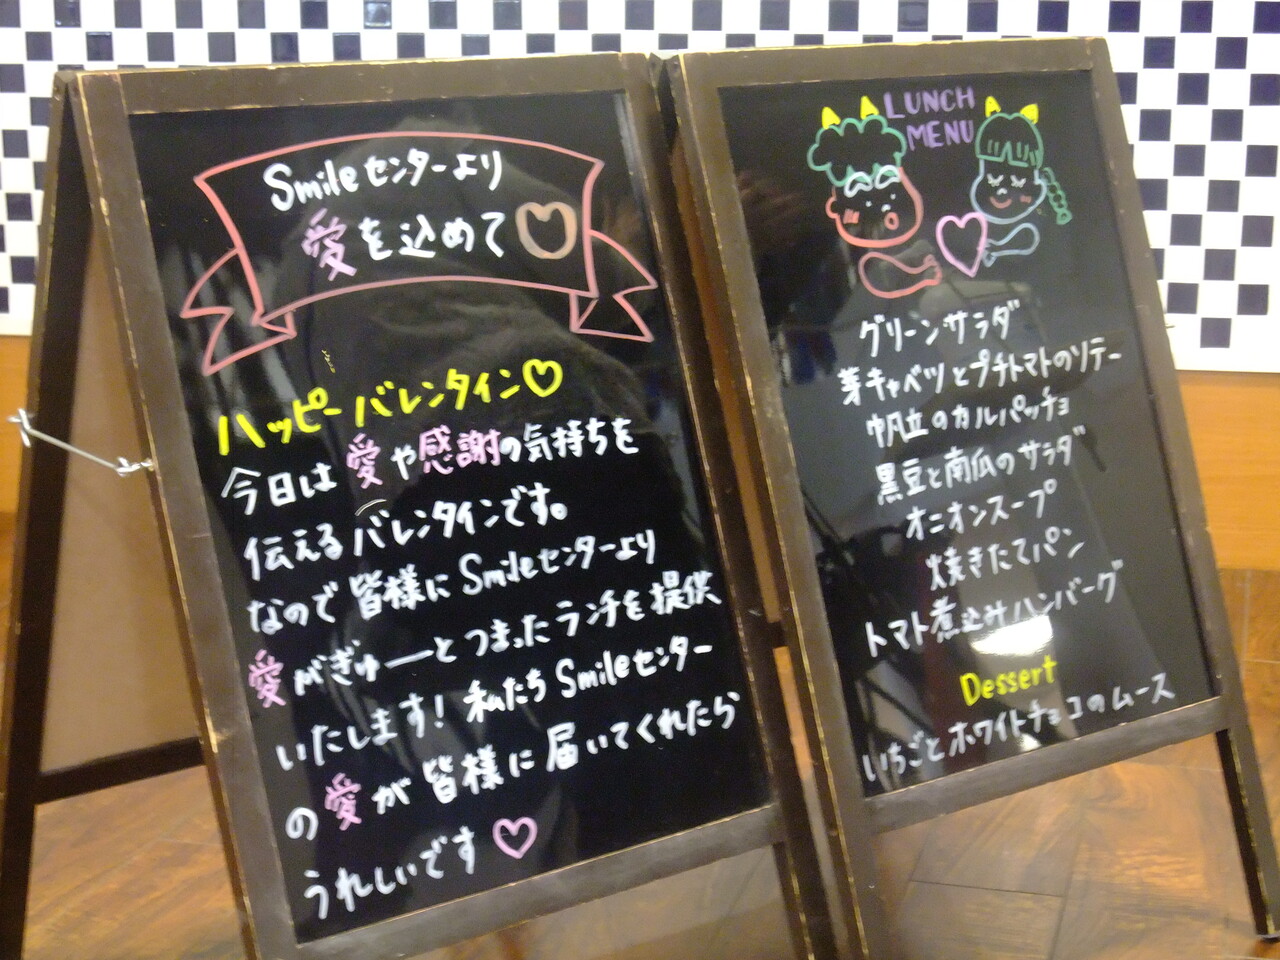 Smileセンターより
愛を込めて♡
ハッピーバレンタイン♡
今日は愛や感謝の気持ちを
伝えるバレンタインです。
なので皆様にSmileセンターより
愛がぎゅーーっとつまったランチを提供
いたします!私たちSmileセンター
の愛が皆様に届いてくれたら
うれしいです♡
LUNCH
MENU
グリーンサラダ
芽キャベツとプチトマトのソテー
帆立のカルパッチョ
黒豆と南瓜のサラダ
オニオンスープ
焼きたてパン
トマト煮込みハンバーグ
Dessert
いちごとホワイトチョコのムース